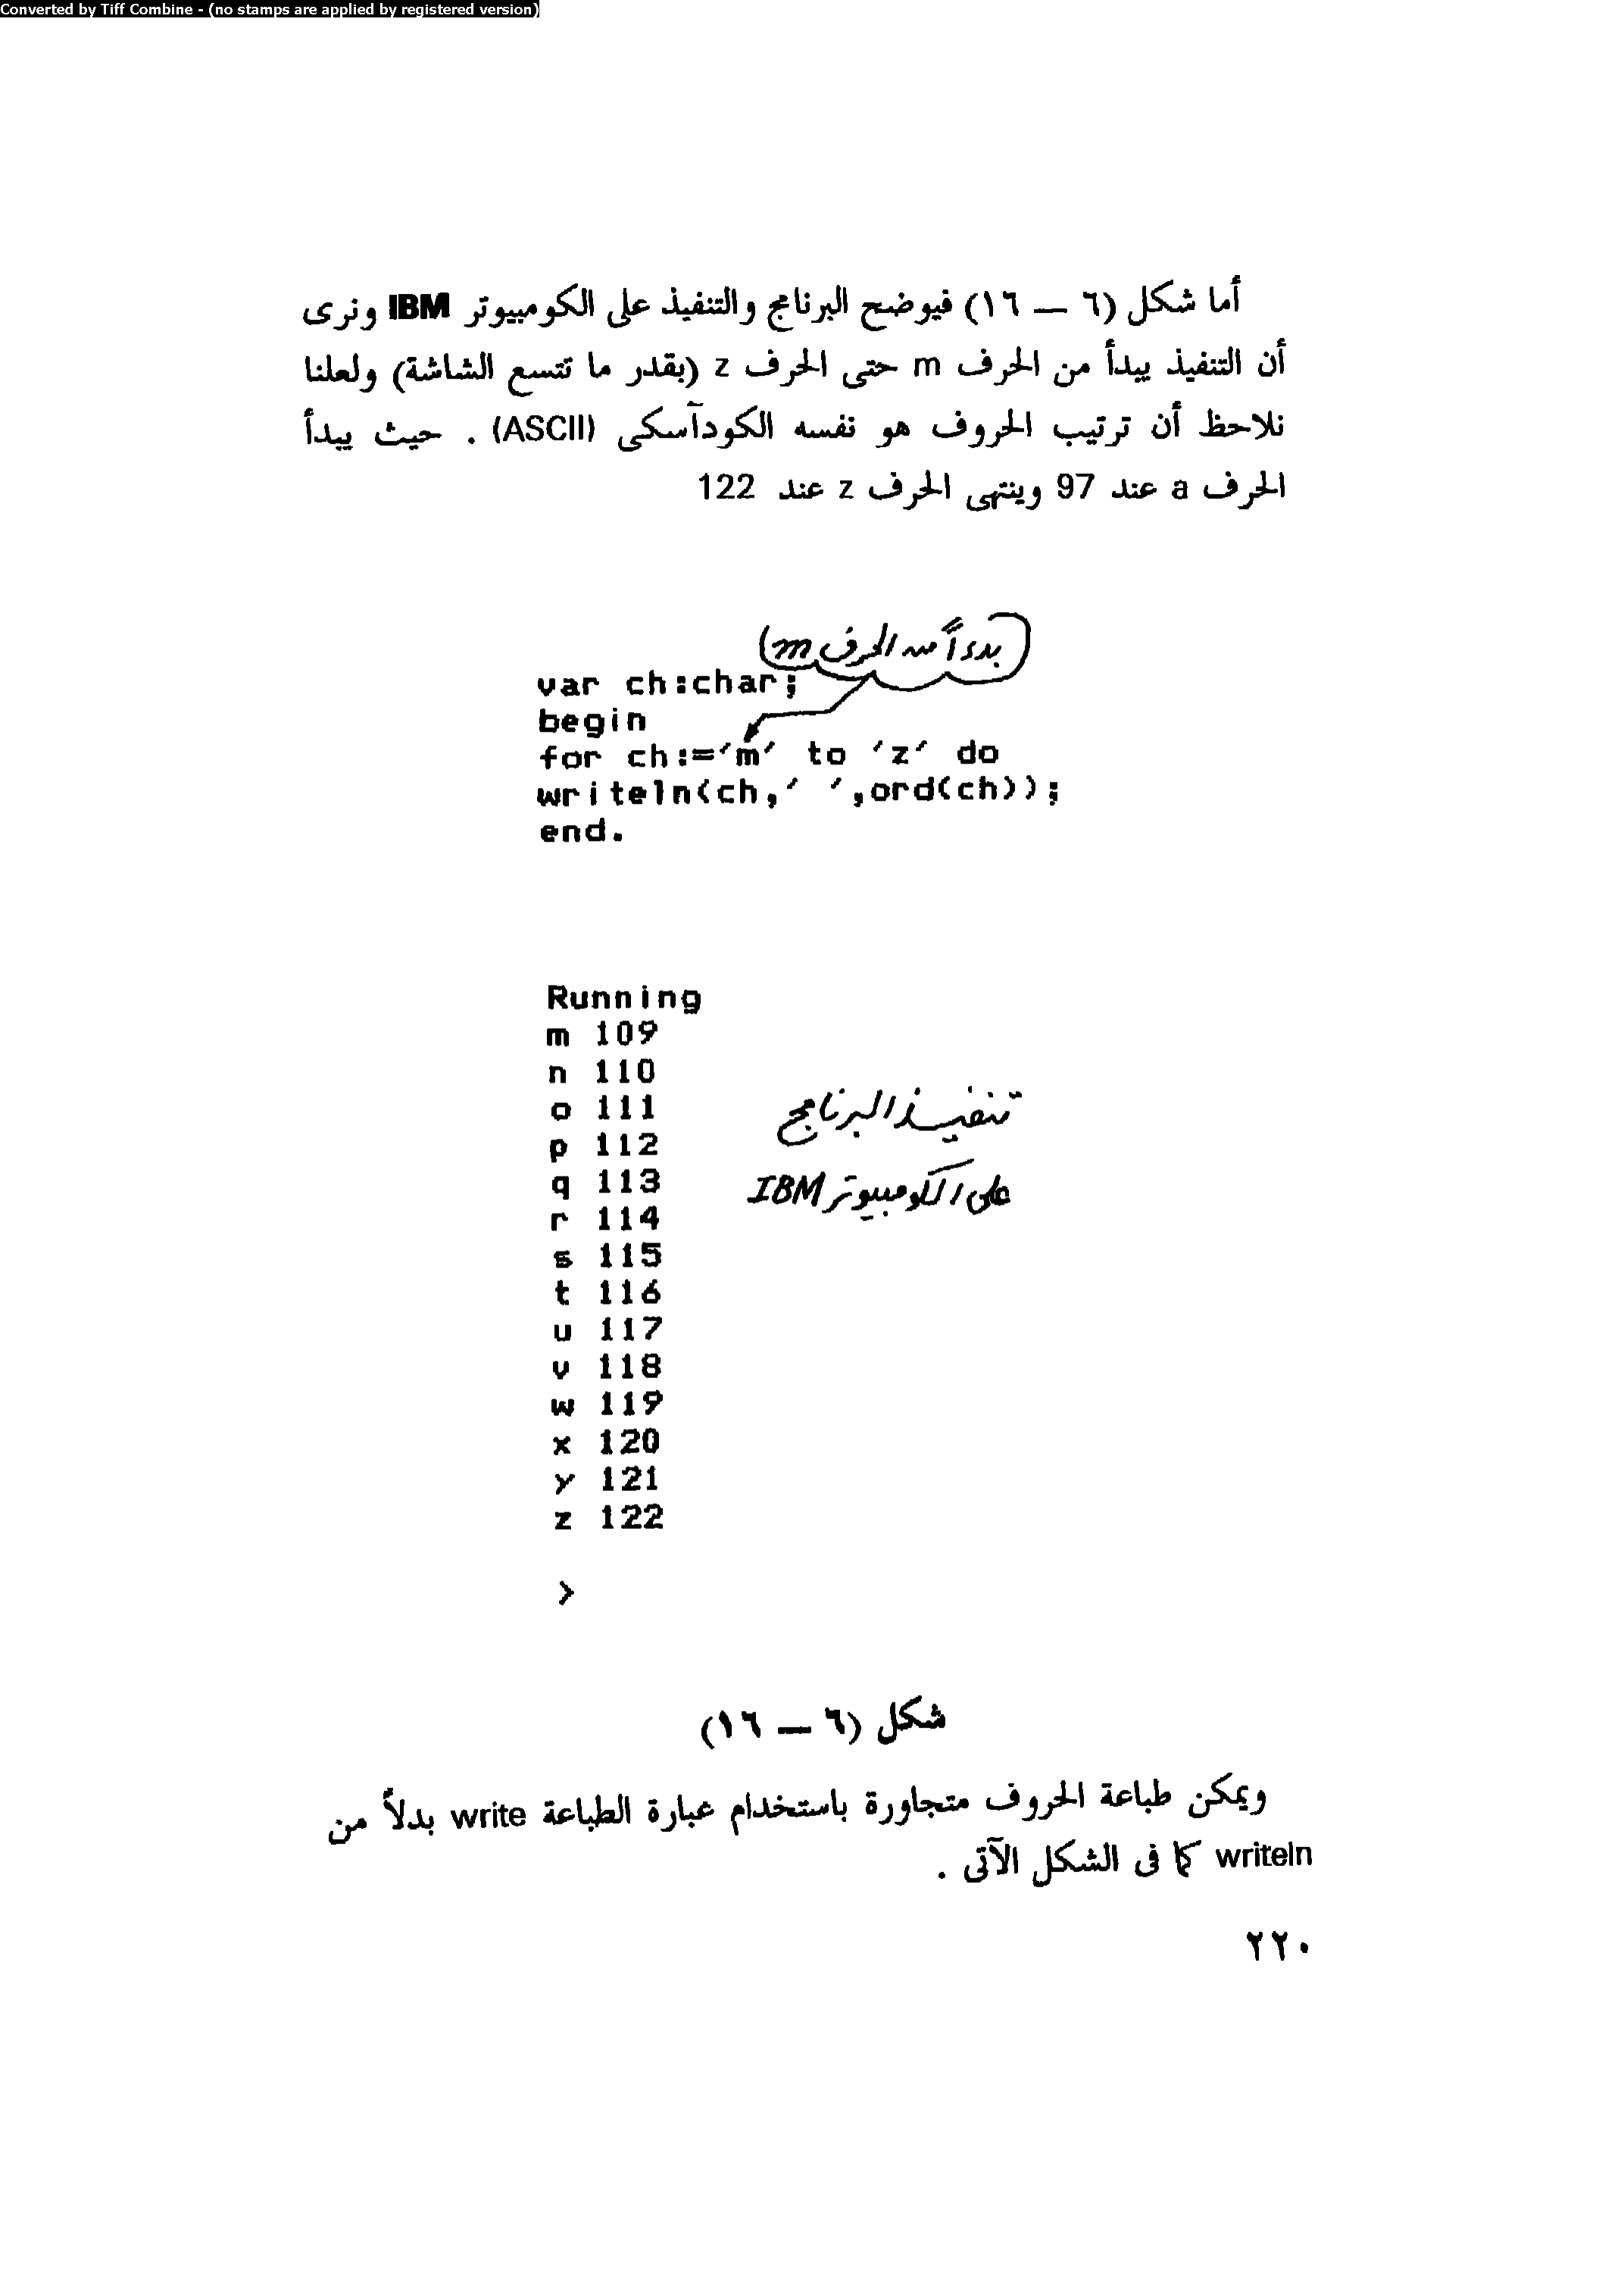 Converted by Tiff Combine - (no stamps are applied by registered version)
أما شكل (٦ — ١٦) فيوضح البرنامج والتنفيذ على الكومبيوتر IBM ونرى
أن التنفيذ يبدأ من الحرف m حتى الحرف z (بقدر ما تتسع الشاشة) ولعلنا
نلاحظ أن ترتيب الحروف هو نفسه الكودآسكى (ASCII) . حيث يبدأ
الحرف a عند 97 وينتهى الحرف z عند 122
(بدءاً من الحرف m)
var ch:char;
begin
for ch:='m' to 'z' do
writeln(ch,' ',ord(ch));
end.
Running
m 109
n 110
o 111
p 112
q 113
r 114
s 115
t 116
u 117
v 118
w 119
x 120
y 121
z 122
تنفيذ البرنامج
على الكومبيوتر IBM
>
شكل (٦ — ١٦)
ويمكن طباعة الحروف متجاورة باستخدام عبارة الطباعة write بدلاً من
writeln كما فى الشكل الآتى .
٢٢٠